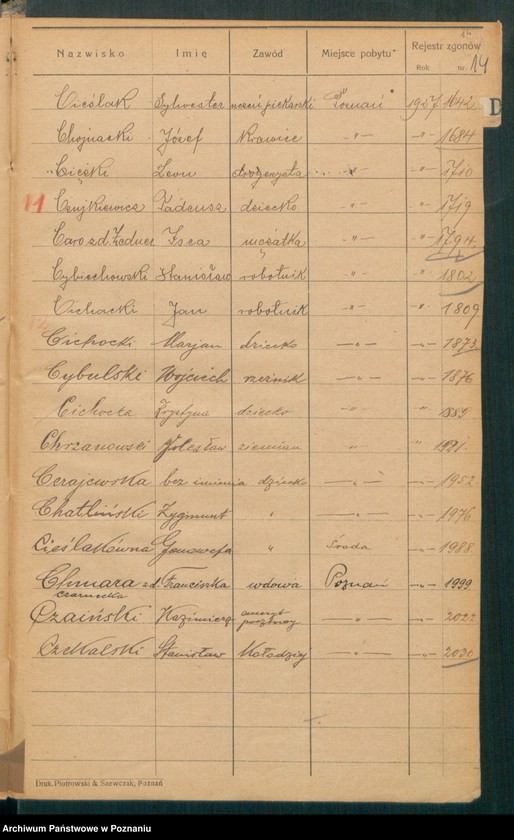 14
Nazwisko Imię Zawód Miejsce pobytu Rejestr zgonów
Rok nr. 14
Cieślak Sylwester uczeń piekarski Poznań 1927 1642
D
Chojnacki Józef Krawiec -"- -"- 1684
Ciężki Leon drogerzysta -"- -"- 1710
11 Czujkiewicz Tadeusz dziecko -"- -"- 1719
Caro zd. Zedner Isea mężatka -"- -"- 1794
Cybichowski Stanisław robotnik -"- -"- 1802
Cichacki Jan robotnik -"- -"- 1809
Cichocki Marjan dziecko -"- -"- 1873
Cybulski Wojciech rzeźnik -"- -"- 1876
Cichocka Krystyna dziecko -"- -"- 1889
Chrzanowski Bolesław ziemian " " 1931
Cerajewska bez imienia dziecko -"- -"- 1952
Chatliński Zygmunt " -"- -"- 1976
Cieślakówna Genowefa " Środa -"- 1988
Chmara zd. Franciszka wdowa Poznań -"- 1999
Czarnecka
Czaiński Kazimierz emeryt -"- -"- 2022
pocztowy
Czekalski Stanisław Kołodziej -"- -"- 2030
Druk. Piotrowski & Szewczak, Poznań
Archiwum Państwowe w Poznaniu